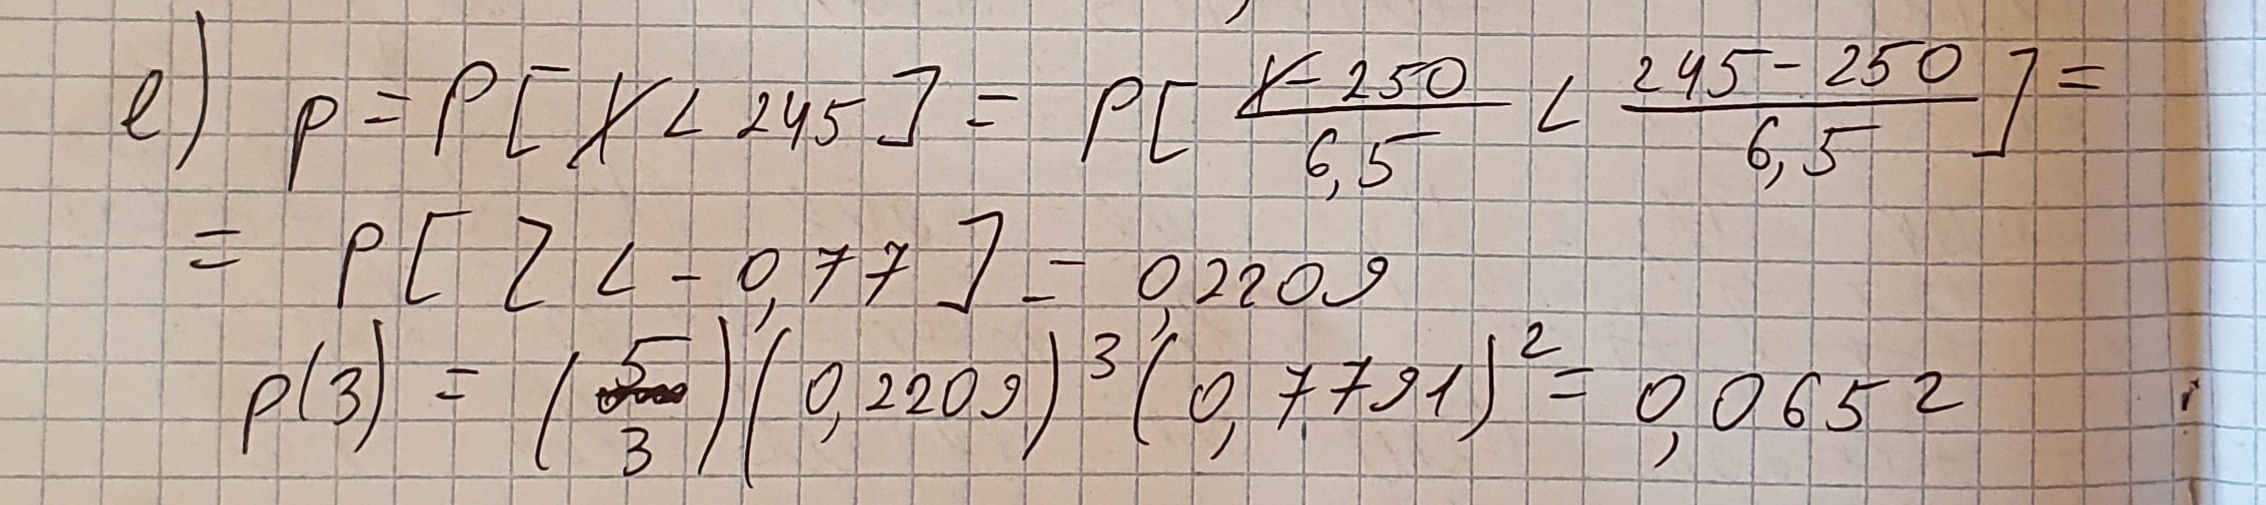 e) p = P[X < 245] = P[(X - 250)/6,5 < (245 - 250)/6,5] =
= P[Z < -0,77] = 0,2209
p(3) = (5 3)(0,2209)³(0,7791)² = 0,0652